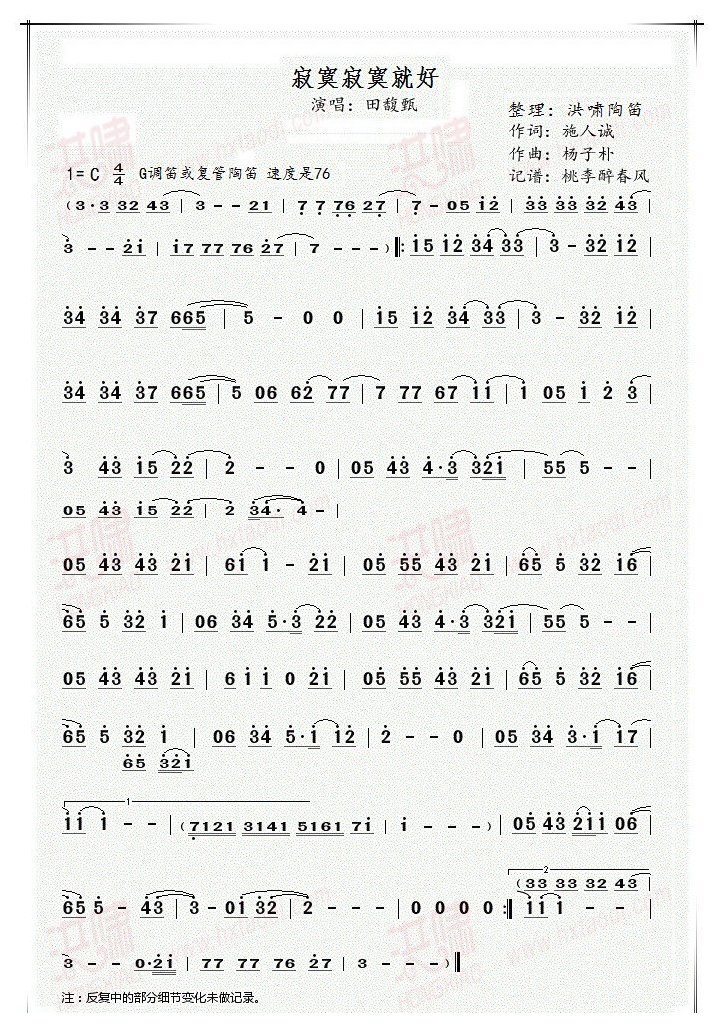 寂寞寂寞就好
演唱：田馥甄
整理：洪啸陶笛
作词：施人诚
作曲：杨子朴
记谱：桃李醉春风
1= C 4/4 G调笛或复管陶笛 速度是76
(3·3 32 43 | 3 - - 21 | 77 7 76 27 | 7 - 05 12 | 33 33 32 43 |
3 - - 21 | 17 77 76 27 | 7 - - - ) ‖: 15 12 34 33 | 3 - 32 12 |
34 34 37 665 | 5 - 0 0 | 15 12 34 33 | 3 - 32 12 |
34 34 37 665 | 5 06 62 77 | 7 77 67 11 | 1 05 1 2 3 |
3 43 15 22 | 2 - - 0 | 05 43 4·3 321 | 55 5 - - |
05 43 15 22 | 2 34· 4 - |
05 43 43 21 | 61 1 - 21 | 05 55 43 21 | 65 5 32 16 |
65 5 32 1 | 06 34 5·3 22 | 05 43 4·3 321 | 55 5 - - |
05 43 43 21 | 611 0 21 | 05 55 43 21 | 65 5 32 16 |
65 5 32 1 | 06 34 5·1 12 | 2 - - 0 | 05 34 3·1 17 |
65 321
1
11 1 - - | (7121 3141 5161 71 | 1 - - - ) | 05 43 211 06 |
2
(33 33 32 43
65 5 - 43 | 3 - 01 32 | 2 - - - | 0 0 0 0 :‖ 11 1 - -
3 - - 0·21 | 77 77 76 27 | 7 - - - ) ‖
注：反复中的部分细节变化未做记录。